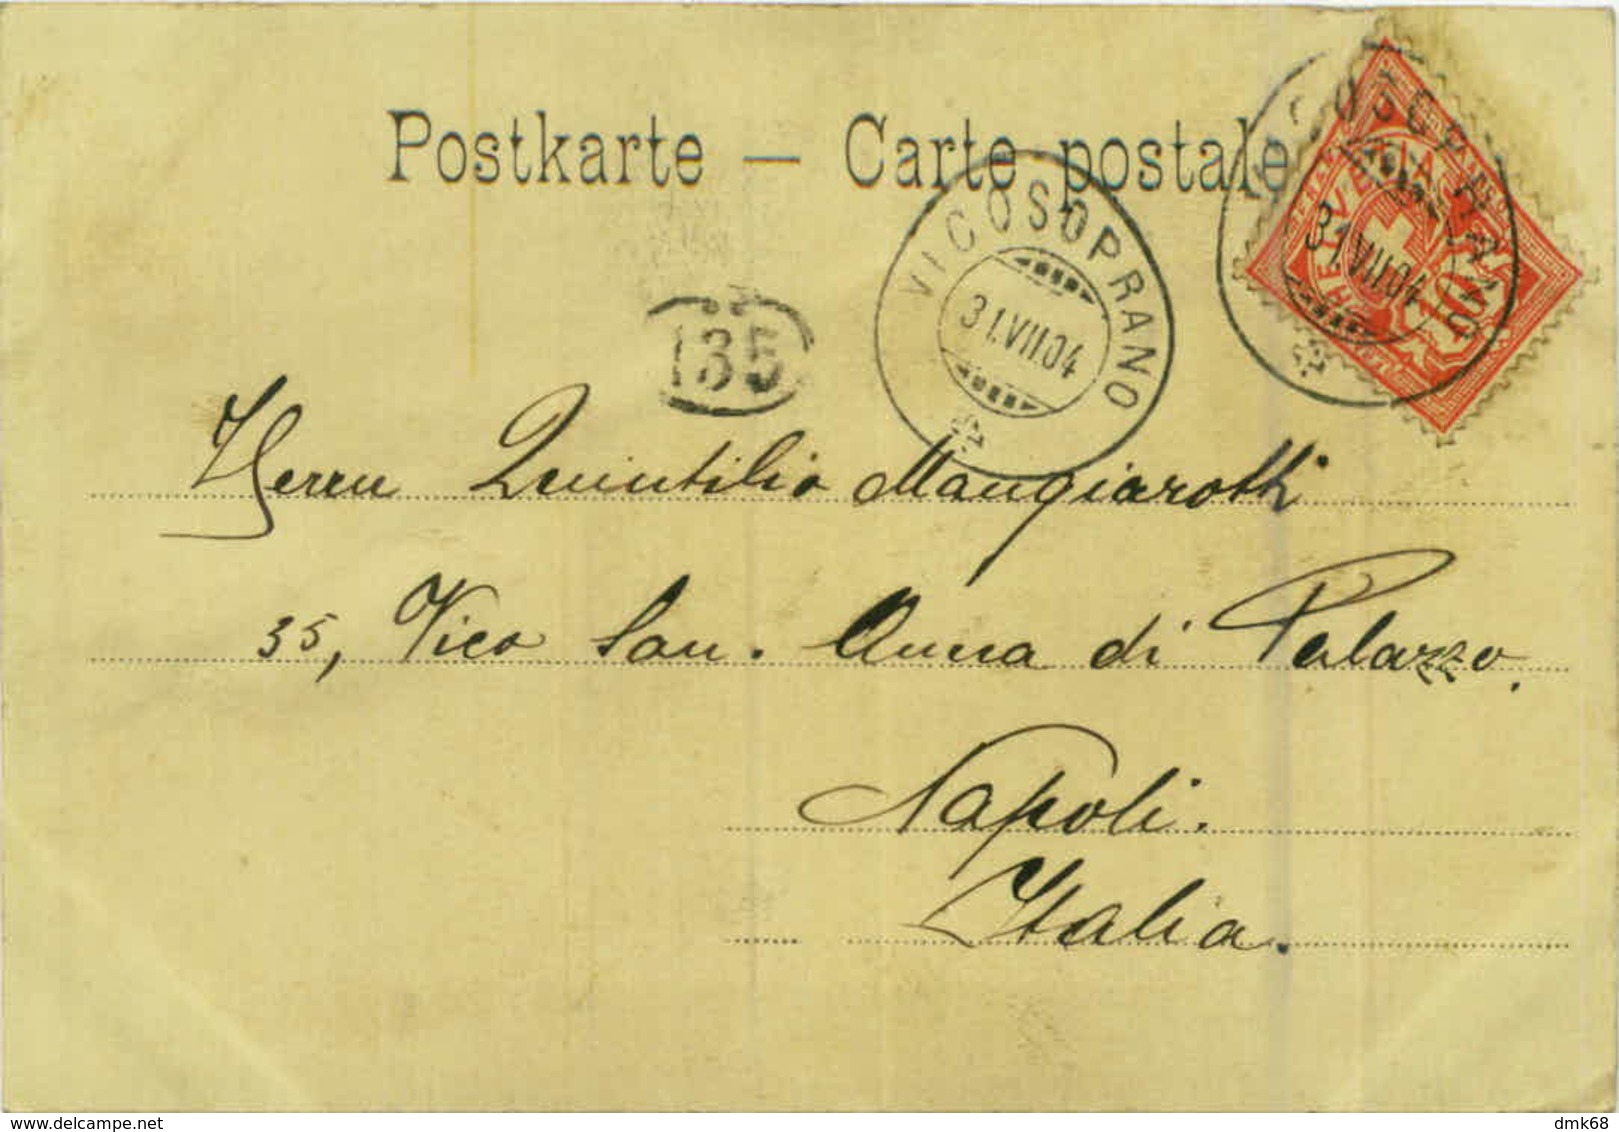 Postkarte — Carte postale
VICOSOPRANO
31.VII.04
31.VII.04
HELVETIA
10
135
Herrn Quintilio Mangiarotti
35, Vico San. Anna di Palazzo.
Napoli.
Italia.
delcampe.net
dmk68